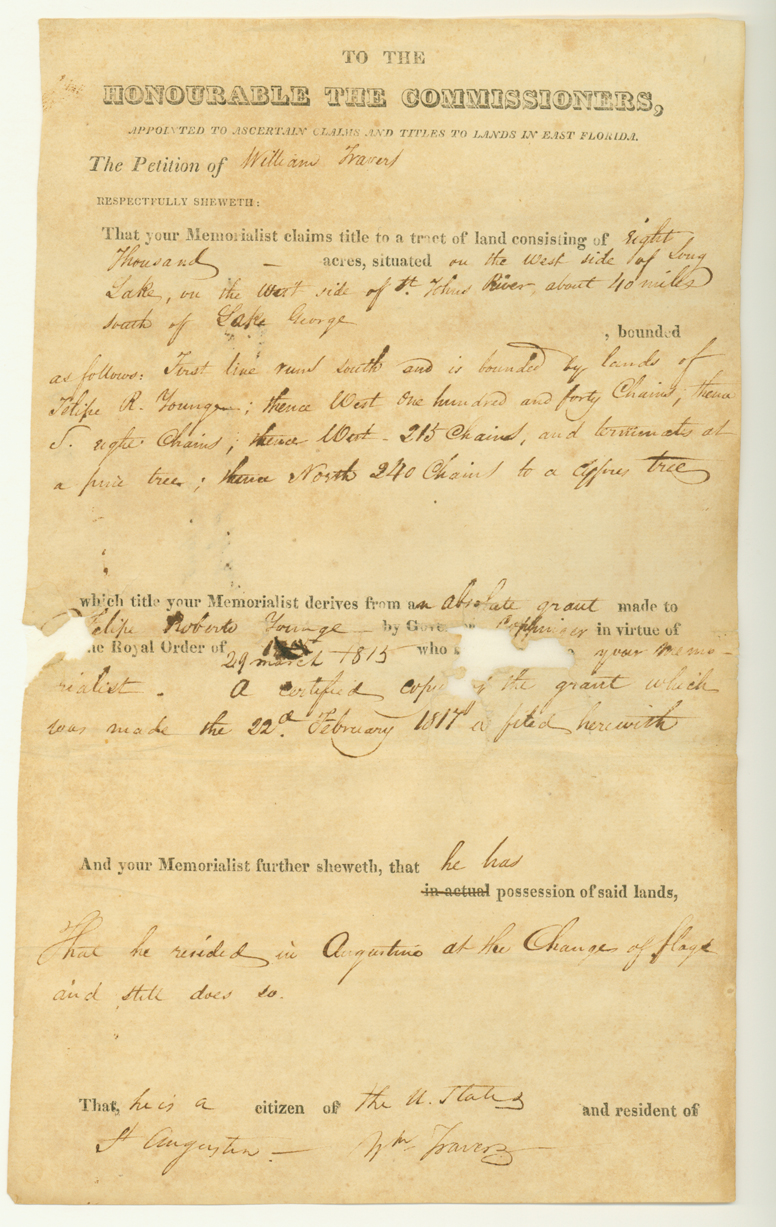 TO THE
HONOURABLE THE COMMISSIONERS,
APPOINTED TO ASCERTAIN CLAIMS AND TITLES TO LANDS IN EAST FLORIDA.
The Petition of William Travers
RESPECTFULLY SHEWETH:
That your Memorialist claims title to a tract of land consisting of eight
Thousand — acres, situated on the west side of Long
Lake, on the west side of St. Johns River about 40 miles
south of Lake George
, bounded
as follows: First line runs south and is bounded by lands of
Felipe R. Younge; thence West one hundred and forty Chains, thence
S. eight Chains; thence West - 215 Chains, and terminates at
a pine tree; thence North 240 Chains to a cypres tree
which title your Memorialist derives from an absolute grant made to
Felipe Roberto Younge — by Coppinger in virtue of
the Royal Order of 29 march 1815 who your memo-
rialist. A certified copy of the grant which
was made the 22d. February 1817 is filed herewith
And your Memorialist further sheweth, that he has
in actual possession of said lands,
That he resided in Augustine at the Change of flags
and still does so.
That, he is a citizen of the U. States and resident of
St Augustine — Wm Travers